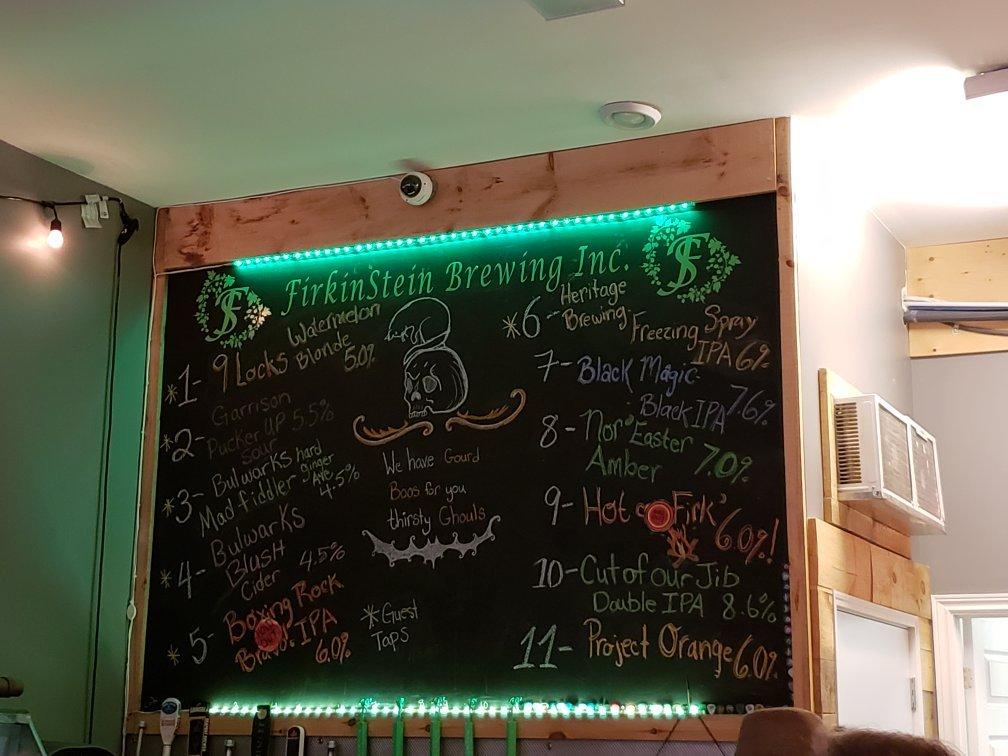 FirkinStein Brewing Inc.
*1- 9 Locks Watermelon
Blonde
5.0%
*2- Garrison
Pucker UP 5.5%
Sour
*3- Bulwarks hard
ginger
Mad fiddler
4.5%
*4- Bulwarks
Blush
Cider 4.5%
*5- Boxing Rock
IPA
6.0%
We have Gourd
Boos for you
thirsty Ghouls
*Guest
Taps
*6- Heritage
Brewing Freezing Spray
IPA 6%
7- Black Magic
Black IPA 7.6%
8- Nor'Easter
Amber 7.0%
9- Hot Firk'
6.0%!
10- Cut of our Jib
Double IPA 8.6%
11- Project Orange 6.0%